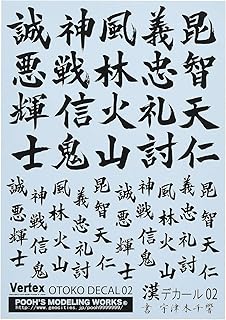 昆智天仁
義忠礼討
風林火山
神戦信鬼
誠悪輝士
昆智天仁
義忠礼討
風林火山
神戦信鬼
誠悪輝士
Vertex OTOKO DECAL 02
POOH'S MODELING WORKS
漢デカール 02
書 宇津木千